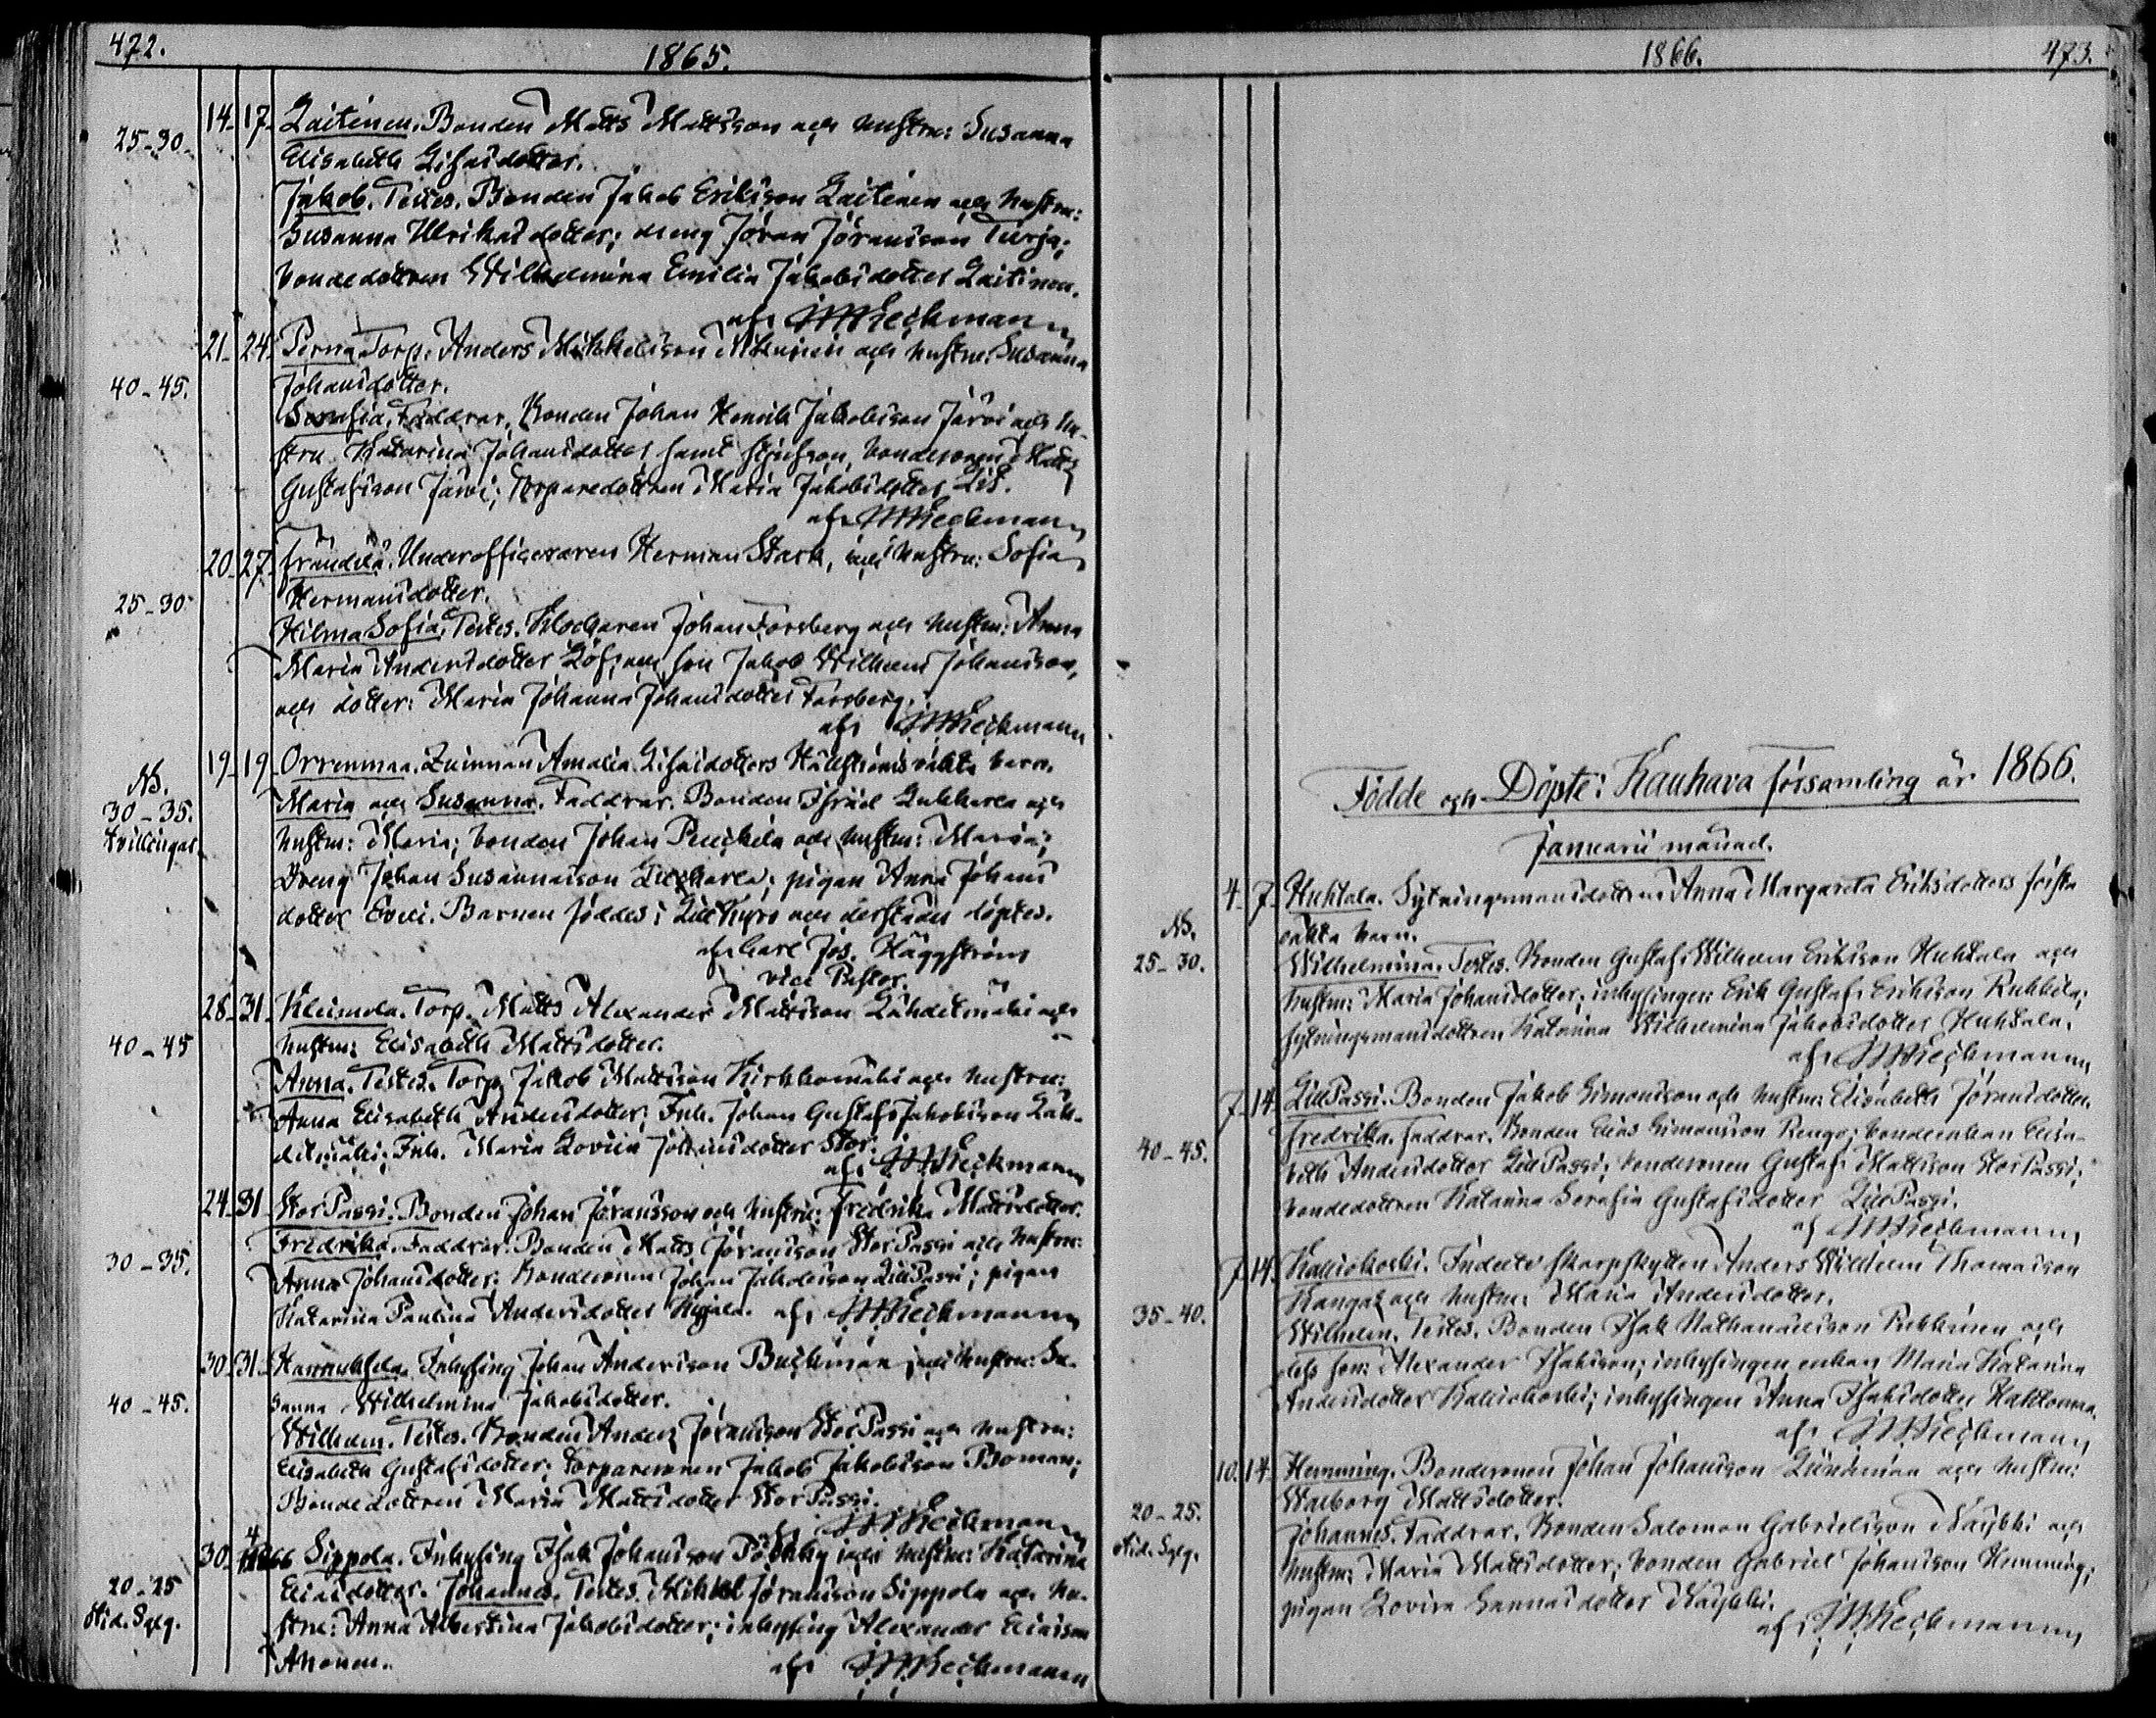 472.
1865.
25-30.
14-17- Laitinen. Bonden Matts Mattsson och hustru: Susanna
Elisabeth Lisasdotter.
Jakob. Testes. Bonden Jakob Eriksson Laitinen och hustru:
Susanna Ulrikasdotter; dreng Jöran Jöransson Turja;
bondedottren Wilhelmina Emilia Jakobsdotter Laitinen.
af
40-45.
21-24- Perna Torp. Anders Mikkelsson och hustru: Susanna
Johansdotter.
Serafia. Faddrar. Bonden Johan Henrik Jakobsson Järvi och hu-
stru Katarina Johansdotter samt bondesonen Matts
Gustafsson Järvi; Torparedottren Maria Jakobsdotter
af
25-30-
20-27. Frändilä. Underofficeraren Herman Stark, och hustru: Sofia
Hermansdotter.
Hilma Sofia. Testes. Klockaren Johan Forsberg och hustru: Anna
Maria Andersdotter Löf, och son Jakob Wilhelm Johansson,
och dotter: Maria Johanna Johansdotter Forsberg.
af
NB.
30-35.
tvillingar.
19-19- Orrenmaa. Qvinnan Amalia Lisasdotters oäkta barn.
Maria och Susanna. Faddrar. Bonden Israel Lukkarla och
hustru: Maria; bonden Johan och hustru: Maria;
Dreng Johan Susannasson pigan Anna Johans
dotter Barnen föddes i Lill Kyro och derstädes döptes.
af Carl Jos. Häggström
vice Pastor.
40-45
28-31- Kleimola. Torp. Matts Alexander Mattsson Lähdetmäki och
hustru: Elisabeth Mattsdotter.
Anna. Testes. Torp. Jakob Mattsson Kirkkomäki och hustru:
Anna Elisabeth Andersdotter; Inh. Johan Gustaf Jakobsson Läh-
detmäki; Inh. Maria Lovisa Johansdotter Stor.
af
30-35.
24-31- StorPassi. Bonden Johan Jöransson och hustru: Fredrika Mattsdotter.
Fredrika. Faddrar. Bonden Matts Jöransson StorPassi och hustru:
Anna Johansdotter. Bondesonen Johan Jakobsson LillPassi; pigan
Katarina Paulina Andersdotter af
40-45.
30-31- Inhysing Johan Andersson och hustru: Su-
sanna Wilhelmina Jakobsdotter.
Wilhelm. Testes. Bonden Anders Jöransson StorPassi och hustru:
Elisabeth Gustafsdotter; torparesonen Jakob Jakobsson Boman;
Bondedottren Maria Mattsdotter StorPassi.
af
20-25
30- 1866 Sippola. Inhysing Isak Johansson och hustru: Katarina
Eliasdotter. Johannes. Testes. Mikkel Jöransson Sippola och hu-
stru: Anna Albertina Jakobsdotter; inhysing Alexander Eliasson
Ahonen. af
1866.
473.
Födde och Döpte i Kauhava församling år 1866.
Januarii månad.
NB.
25-30.
4-7- Huhtala. Sytningsmansdottren Anna Margareta Eriksdotters första
oäkta barn.
Wilhelmina. Testes. Bonden Gustaf Wilhelm Eriksson Huhtala och
hustru: Maria Johansdotter; inhysingen Erik Gustaf Eriksson
sytningsmansdottren Katarina Wilhelmina Jakobsdotter Huhtala.
af
40-45.
7-14 LillPassi. Bonden Jakob Simonsson och hustru: Elisabeth Jöransdotter.
Fredrika. Faddrar. Bonden Elias Simonsson Rengo; bondeenkan Elisa-
beth Andersdotter LillPassi; bondesonen Gustaf Mattsson StorPassi;
bondedottren Katarina Serafia Gustafsdotter LillPassi.
af
35-40.
7-14. Kalliokoski. Indelte skarpskytten Anders Wilhelm Thomasson
Kangas och hustru: Maria Andersdotter.
Wilhelm. Testes. Bonden Isak Nathanaelsson Pukkinen och
dess son: Alexander Isaksson; inhysingen enkan Maria Katarina
Andersdotter Kalliokoski; inhysingen Anna Isaksdotter
af
20-25.
10. 14- Hemming. Bondesonen Johan Johansson och hustru:
Walborg Mattsdotter.
Johannes. Faddrar. Bonden Salomon Gabrielsson Näykki och
hustru: Maria Mattsdotter; bonden Gabriel Johansson Hemming;
pigan Lovisa Sannasdotter Näykki.
af